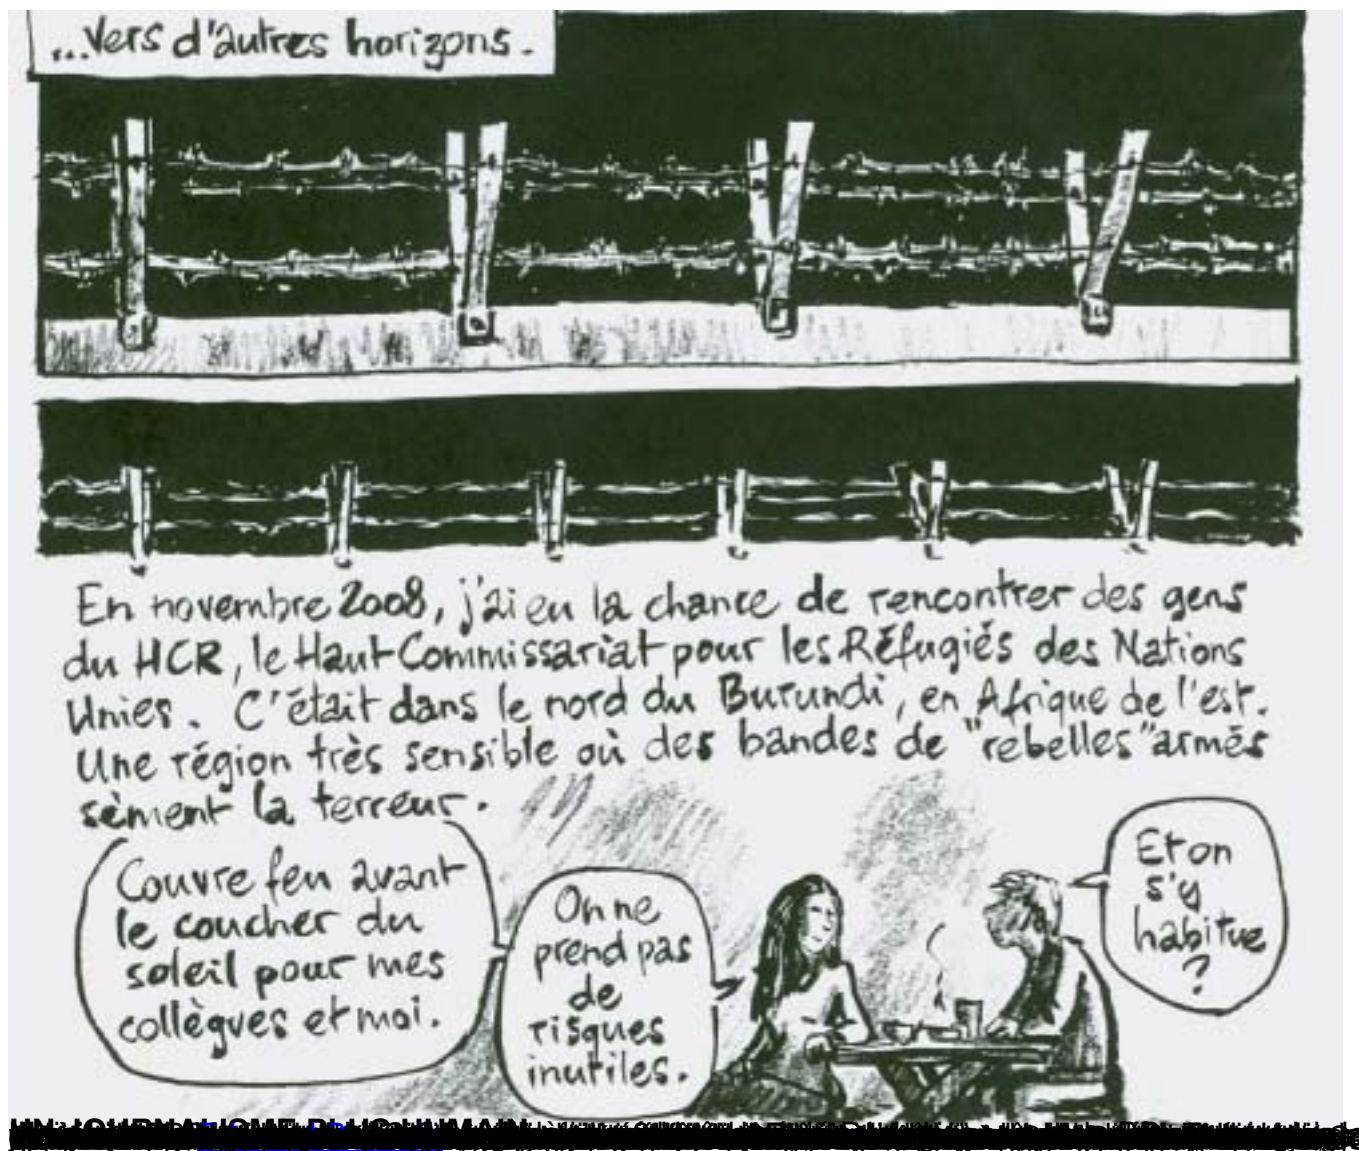 ...vers d'autres horizons.
En novembre 2008, j'ai eu la chance de rencontrer des gens
du HCR, le Haut Commissariat pour les Réfugiés des Nations
Unies. C'était dans le nord du Burundi, en Afrique de l'est.
Une région très sensible où des bandes de "rebelles" armés
sèment la terreur.
Couvre feu avant
le coucher du
soleil pour mes
collègues et moi.
On ne
prend pas
de
risques
inutiles.
Et on
s'y
habitue
?
UN JOURNALISME PLUS HUMAIN